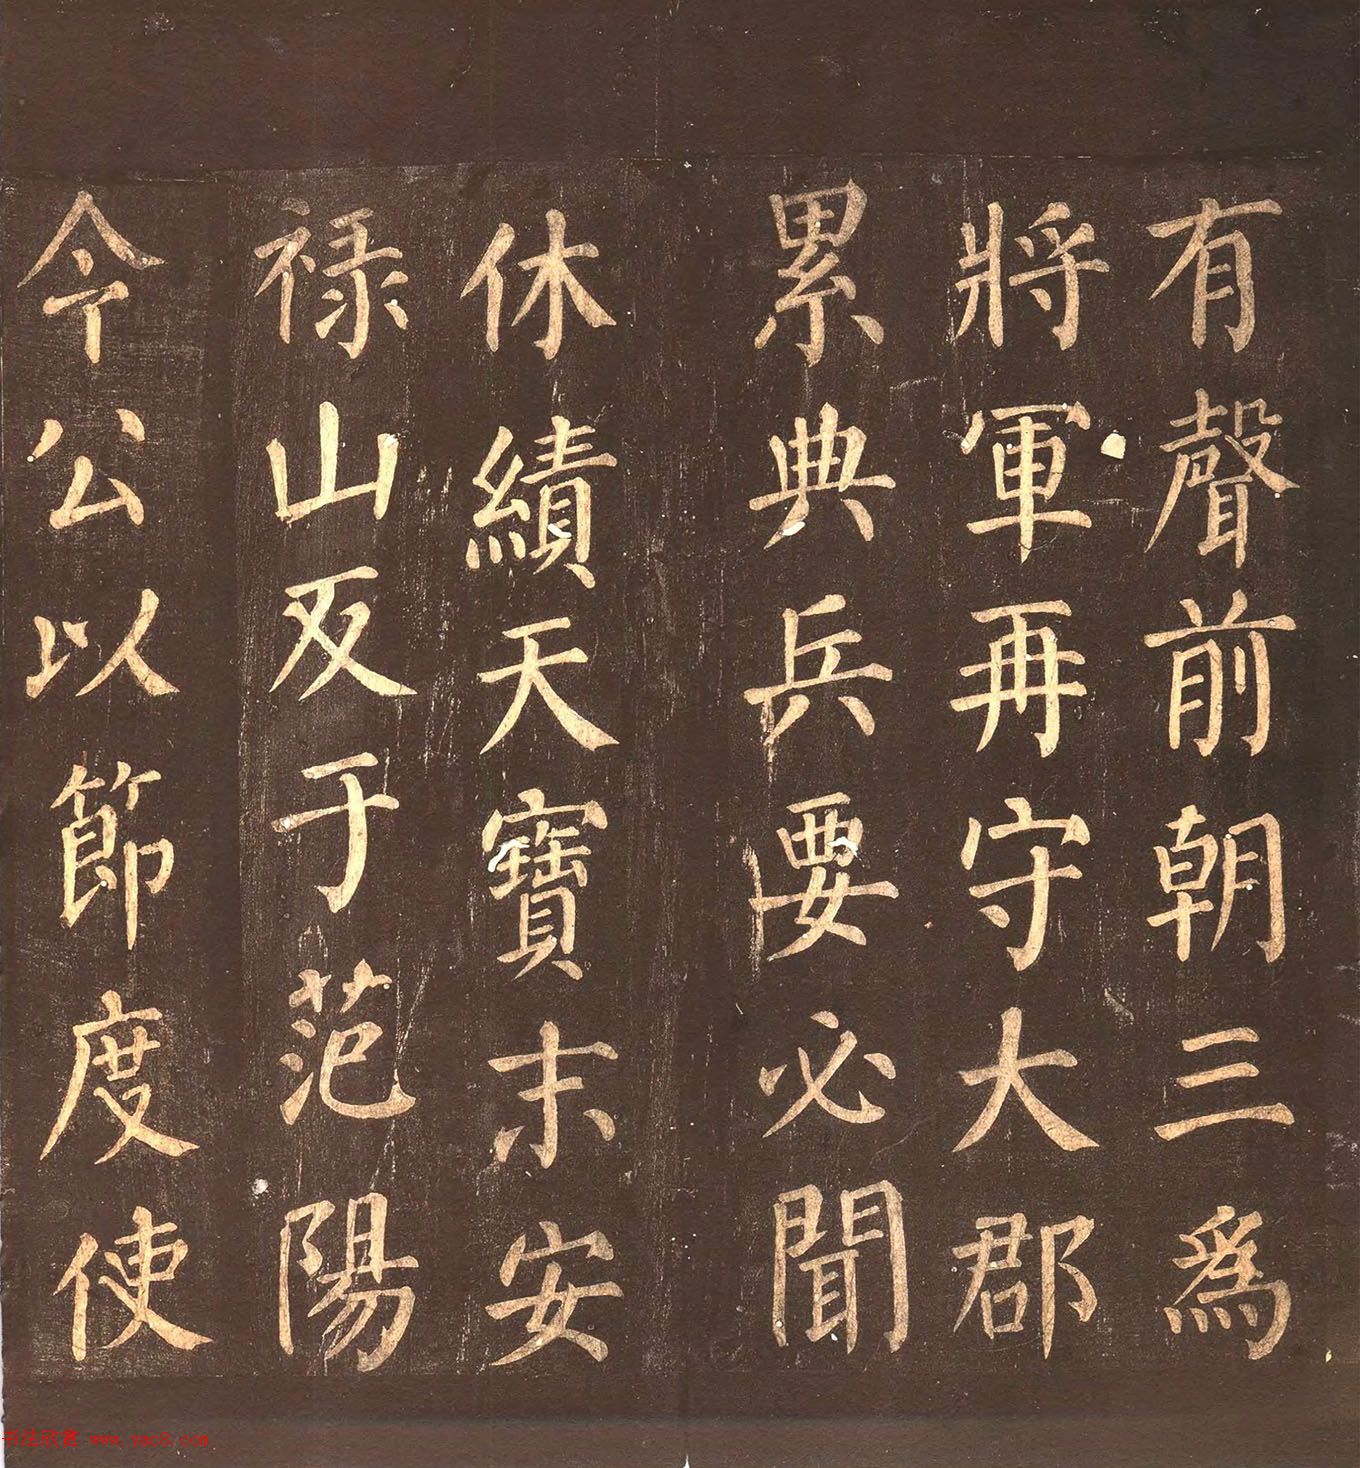 有聲前朝三為
將軍再守大郡
累典兵要必聞
休績天寶末安
禄山反于范陽
今公以節度使
书法欣赏 www.yac8.com